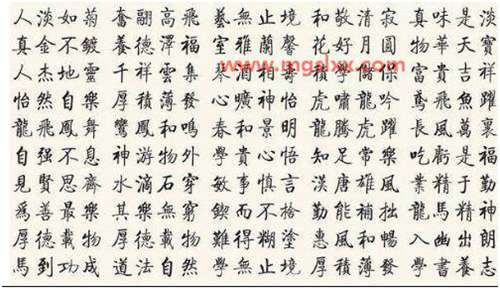 人淡如菊 奮翩高飛 藝無止境 和敬清寂 真味是淡
真金不鍍 養德澤福 室雅蘭馨 花好月圓 物華天寶
www.mgslxx.com
人杰地靈 千祥雲集 酒相壽 積學儲 富貴吉祥
怡然自樂 厚積薄發 心曠神怡 虎嘯龍吟 鳶飛魚躍
龍飛鳳舞 鸞鳳和鳴 春和景明 龍騰虎躍 長風萬裏
自强不息 神游物外 學貴心悟 知足常樂 吃虧是福
見賢思齊 水滴石穿 敏事慎言 漢唐雄風 業精于勤
爲善最樂 其樂無窮 鍥而不捨 勤能補拙 龍馬精神
厚德載物 德載物 難得糊塗 惠風和暢 入幽出朗
馬到功成 道法自然 學無止境 厚積薄發 學書養志